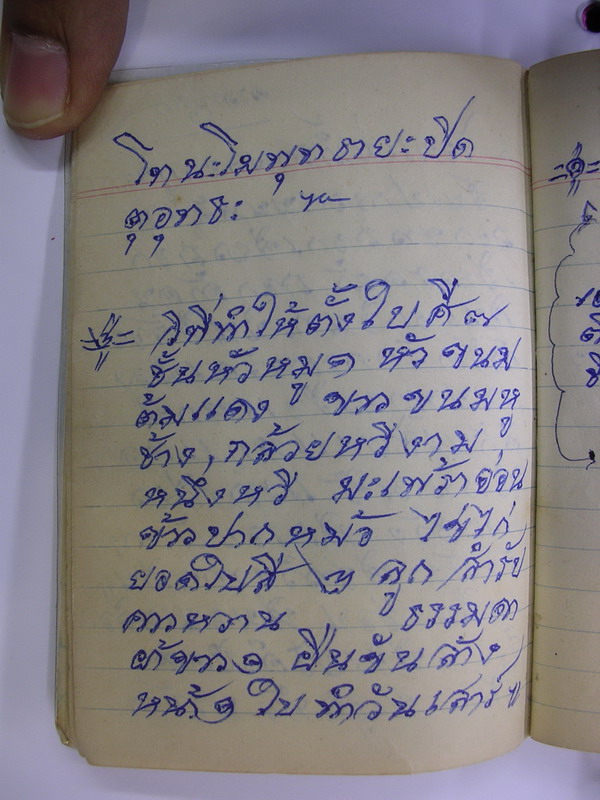 โทนะโมพุทธายะปิด
ตุอุทธะ
วิที่ทำให้ตั้งใบศี ๗
ชั้นหัวหมู ๑ หัว ขนม
ต้มแดง ขาว ขนมหู
ช้าง, กล้วยหวีงาม
หนึ่งหวี มะเพร้าอ่อน
ข้าวปากหม้อ ไข่ไก่
ยอดใบสี ลูก สำรับ
คาวหวาน ธรรมดา
ผ้าขาว ๑ ผืนขันล้าง
หน้า ๑ ใบ ทำวันเสาร์ฯ